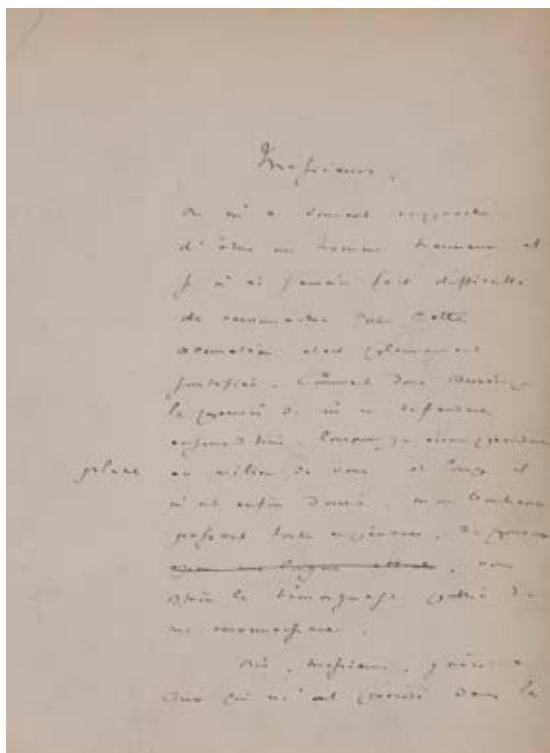 Messieurs,
On m'a souvent reproché
d'être un homme heureux et
je n'ai jamais fait difficulté
de reconnaître que cette
accusation était pleinement
justifiée. Comment donc aurais-je
la pensée de m'en défendre
aujourd'hui, lorsque je viens prendre
place au milieu de vous et lorsqu'il
m'est enfin donné, mon bonheur
passant toute espérance, de pouvoir
après une longue attente, vous
offrir le témoignage public de
ma reconnaissance.
Oui, Messieurs,
qui m'ont précédé dans la